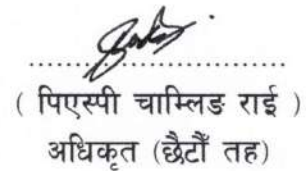 ................................
( पिएस्पी चाम्लिङ राई )
अधिकृत (छैटौँ तह)